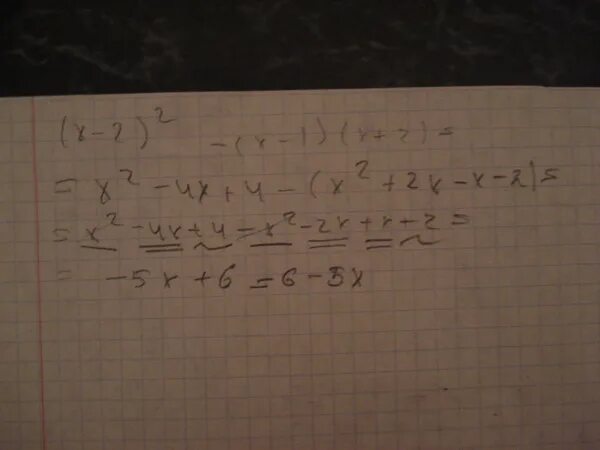 (x-2)² -(x-1)(x+2)=
= x² -4x+4-(x²+2x-x-2)=
= x² -4x+4-x²-2x+x+2=
= -5x+6=6-5x